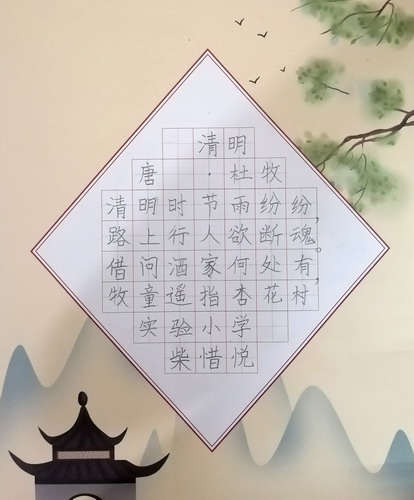 清明
唐·杜牧
清明时节雨纷纷,
路上行人欲断魂。
借问酒家何处有,
牧童遥指杏花村
实验小学
柴惜悦